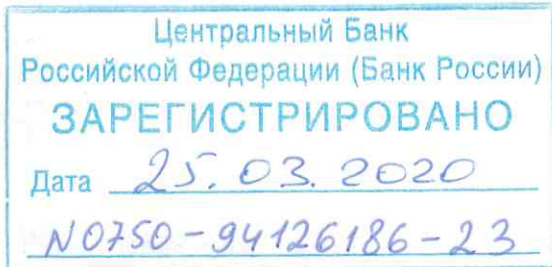 Центральный Банк
Российской Федерации (Банк России)
ЗАРЕГИСТРИРОВАНО
Дата 25.03.2020
N0750-94126186-23